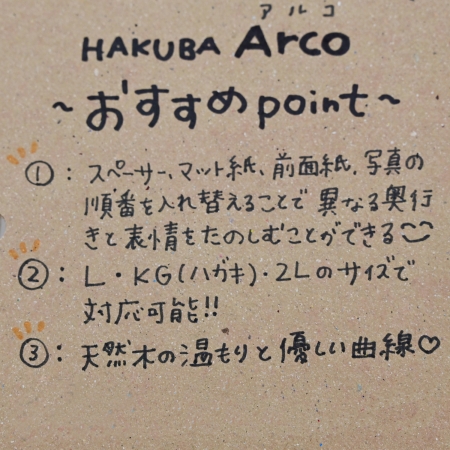 アルコ
HAKUBA Arco
~おすすめpoint~
①：スペーサー、マット紙、前面紙、写真の
順番を入れ替えることで異なる奥行
きと表情をたのしむことができる
②：L・KG(ハガキ)・2Lのサイズで
対応可能!!
③：天然木の温もりと優しい曲線♡